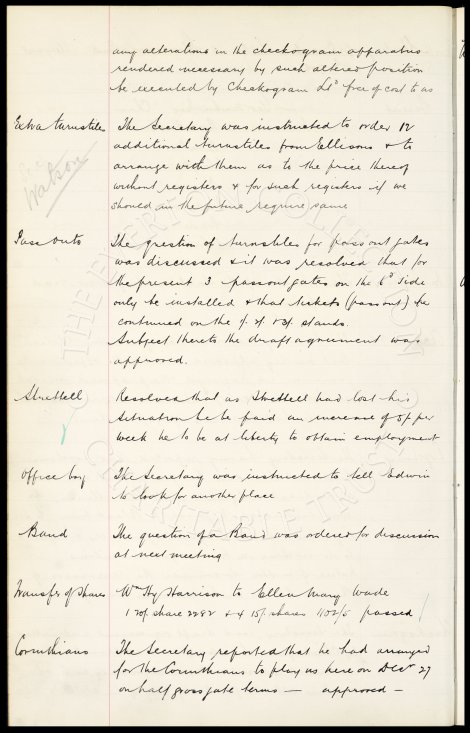 any alterations in the checkogram apparatus
rendered necessary by such altered position
be executed by Checkogram Ld free of cost to us
Extra turnstiles The Secretary was instructed to order 12
additional turnstiles from Ellisons & to
arrange with them as to the price thereof
Watson
without registers & for such registers if we
should in the future require same
Pass outs The question of turnstiles for pass out gates
was discussed & it was resolved that for
the present 3 passout gates on the 6d side
only be installed & that tickets (pass out) be
continued on the stands.
Subject thereto the draft agreement was
approved.
Strettell Resolved that as Strettell had lost his
situation he be paid an increase of 5/- per
week he to be at liberty to obtain employment
Office boy The Secretary was instructed to tell Edwin
to look for another place
Band The question of a Band was ordered for discussion
at next meeting
Transfer of shares Wm Hy Harrison to Ellen Mary Wade
1 20/- share 2292 & 4 15/- shares 1102/5 passed
Corinthians The Secretary reported that he had arranged
for the Corinthians to play us here on Decr 27
on half gross gate terms — approved —
THE EVERTON COLLECTION
CHARITABLE TRUST